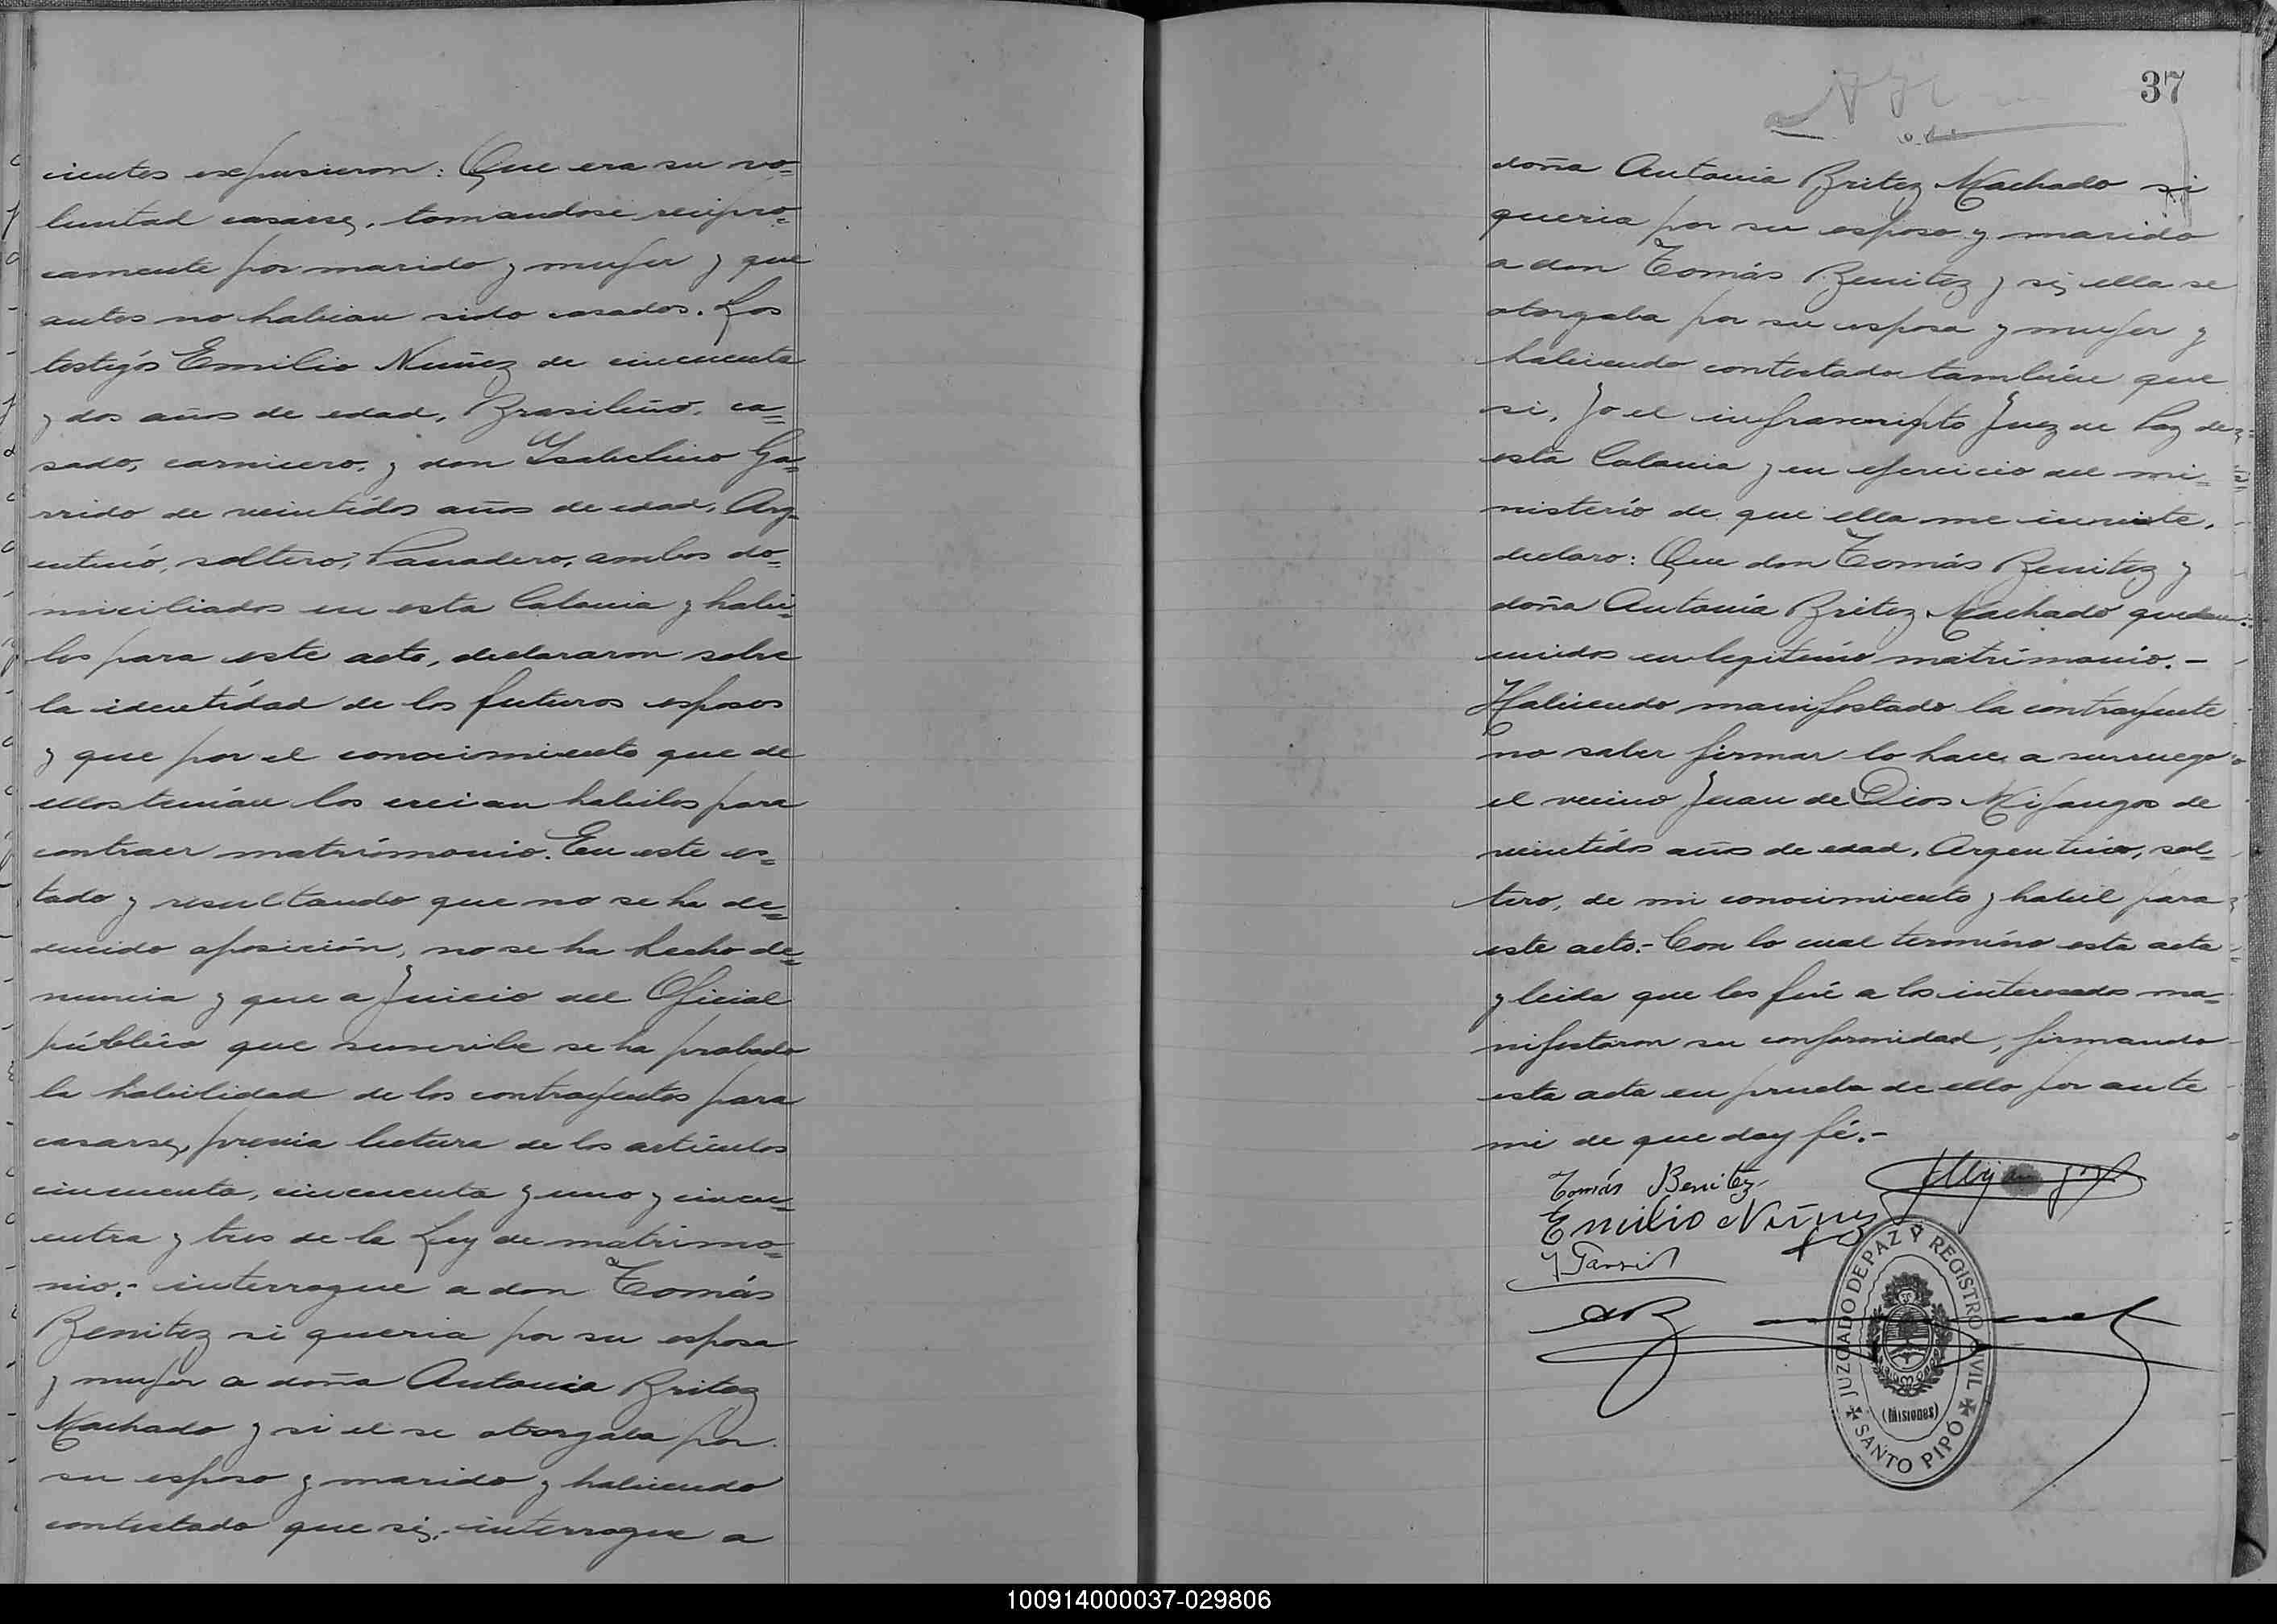 cientes expusieron: Que era su vo=
luntad casarse, tomandose recipro=
camente por marido y mujer y que
antes no habian sido casados. Los
testigós Emilio Nuñez de cincuenta
y dos años de edad, Brasileño, ca=
sado, carnicero, y don Ysabelino Ga=
rrido de veintidós años de edad, Arg=
entino, soltero, Panadero, ambos do=
miciliados en esta Colonia y habi=
les para este acto, declararon sobre
la identidad de los futuros esposos
y que por el conocimiento que de
ellos tenian los creian habiles para
contraer matrimonio. En este es=
tado y resultando que no se ha de=
ducido oposición, no se ha hecho de=
nuncia y que a Juicio del Oficial
público que suscribe se ha probado
la habilidad de los contrayentes para
casarse, previa lectura de los articulos
cincuenta, cincuenta y uno y cincu=
entra y tres de la Ley de matrimo=
nio.- interrogue a don Tomás
Benitez si queria por su esposa
y mujer a doña Antonia Britez
Machado y si el se otorgaba por
su esposo y marido y habiendo
contestado que si, interrogue a
37
doña Antonia Britez Machado si
queria por su esposo y marido
a don Tomás Benitez y si ella se
otorgaba por su esposa y mujer y
habiendo contestado también que
si, Yo el infrascripto Juez de Paz de
esta Colonia y en ejercicio del mi=
nisterio de que ella me inviste,
declaro: Que don Tomás Benitez y
doña Antonia Britez Machado quedan
unidos en legitimo matrimonio.-
Habiendo manifestado la contrayente
no saber firmar lo hace a su ruego
el vecino Juan de Dios Mijangos de
veintidós años de edad, Argentino, sol=
tero, de mi conocimiento y habil para
este acto.- Con lo cual termino esta acta
y leida que les fué a los interesados ma=
nifestaron su conformidad, firmando
esta acta en prueba de ello por ante
mi de que doy fé.-
Tomás Benitez
Emilio Nuñez
Y Garrid
JUZGADO DE PAZ Y REGISTRO CIVIL
(Misiones)
SANTO PIPÓ
100914000037-029806